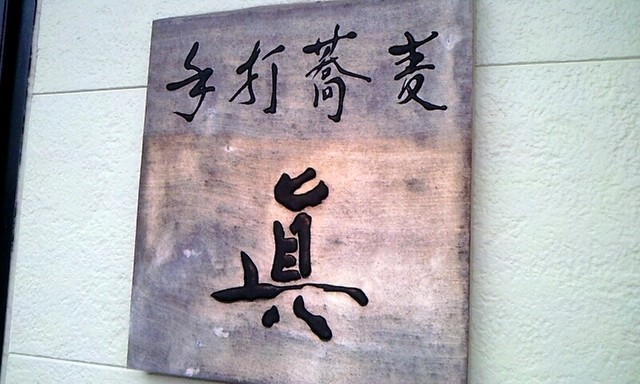 手打蕎麦
眞